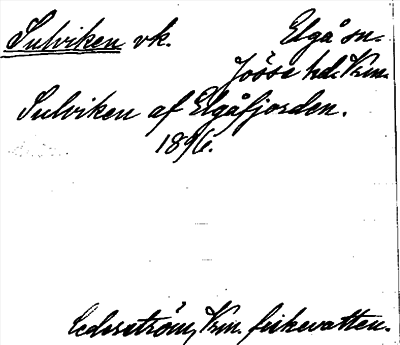 Sulviken vk. Elgå sn.
Jösse hd. Vrm.
Sulviken af Elgåfjorden.
1896.
Cederström, Vrm. fiskevatten.